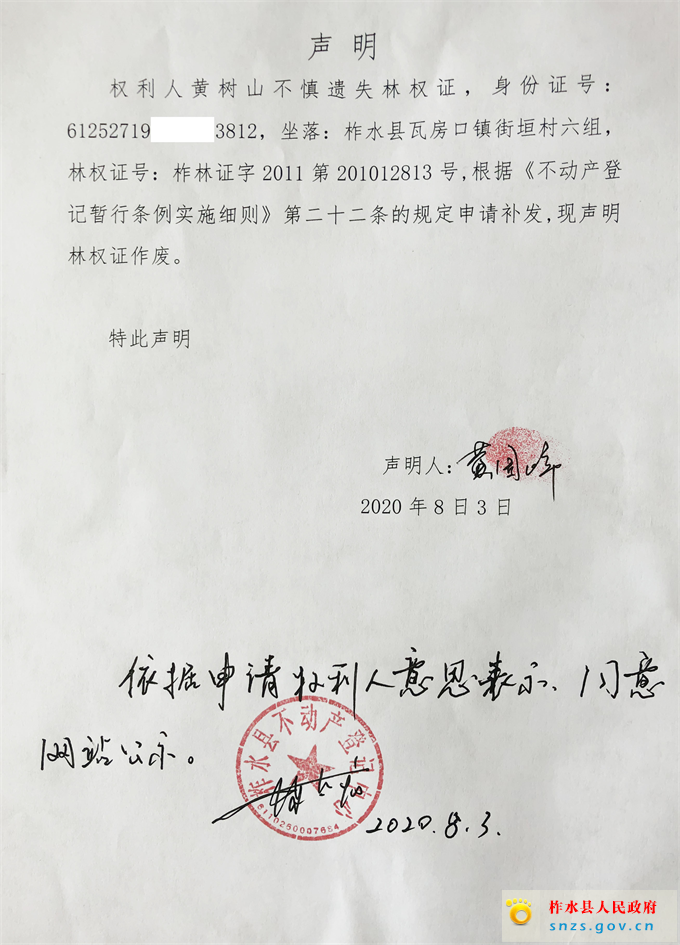 声明
权利人黄树山不慎遗失林权证，身份证号：
61252719 3812，坐落：柞水县瓦房口镇街垣村六组，
林权证号：柞林证字 2011 第 201012813 号,根据《不动产登
记暂行条例实施细则》第二十二条的规定申请补发,现声明
林权证作废。
特此声明
声明人：黄国峰
2020 年 8 日 3 日
依据申请权利人意思表示、同意
网站公示。
柞水县不动产登记中心
6110260007694
2020.8.3.
柞水县人民政府
snzs.gov.cn